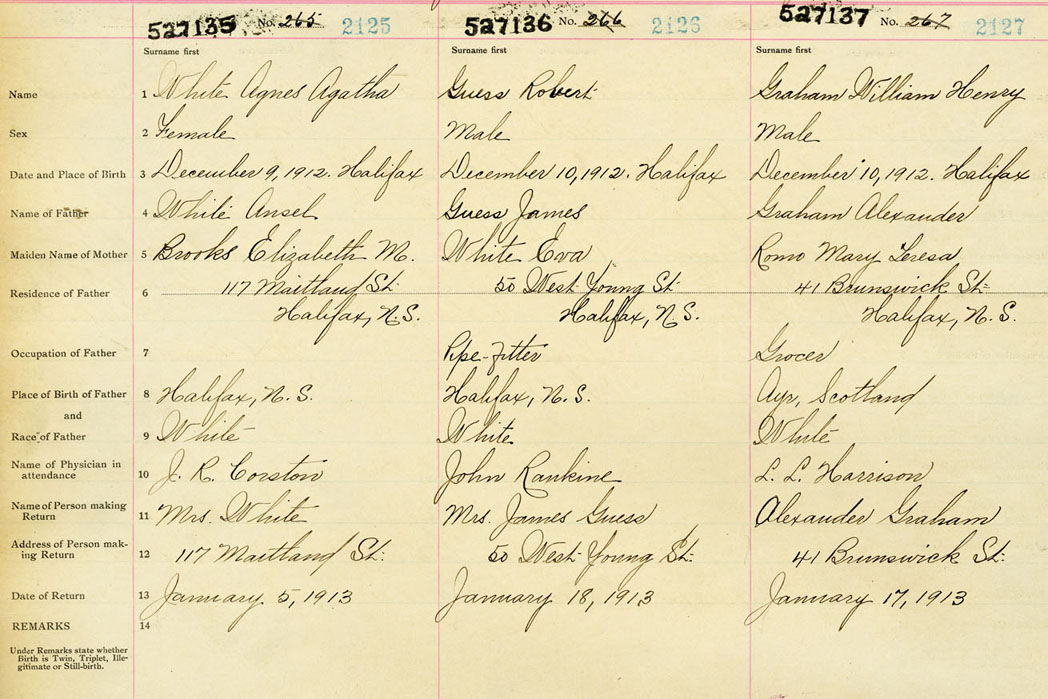 527135 No. 265 2125 527136 No. 266 2126 527137 No. 267 2127
Surname first Surname first Surname first
Name 1 White Agnes Agatha Guess Robert Graham William Henry
Sex 2 Female Male Male
Date and Place of Birth 3 December 9, 1912. Halifax December 10, 1912. Halifax December 10, 1912. Halifax
Name of Father 4 White Ansel Guess James Graham Alexander
Maiden Name of Mother 5 Brooks Elizabeth M. White Eva Romo Mary Teresa
Residence of Father 6 117 Maitland St. 50 West Young St. 41 Brunswick St.
Halifax, N.S. Halifax, N.S. Halifax, N.S.
Occupation of Father 7 Pipe-fitter Grocer
Place of Birth of Father 8 Halifax, N.S. Halifax, N.S. Ayr, Scotland
and
Race of Father 9 White White White
Name of Physician in
attendance 10 J. R. Corston John Rankine L. L. Harrison
Name of Person making
Return 11 Mrs. White Mrs. James Guess Alexander Graham
Address of Person mak-
ing Return 12 117 Maitland St. 50 West Young St. 41 Brunswick St.
Date of Return 13 January 5, 1913 January 18, 1913 January 17, 1913
REMARKS 14
Under Remarks state whether
Birth is Twin, Triplet, Ille-
gitimate or Still-birth.